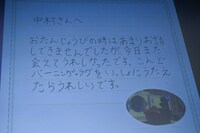 中村さんへ
おたんじょうびの時はあまりお話
しできませんでしたが、今日また
会えてうれしかったです。こんど
バーニングラブをいっしょにうたえ
たらうれしいです。